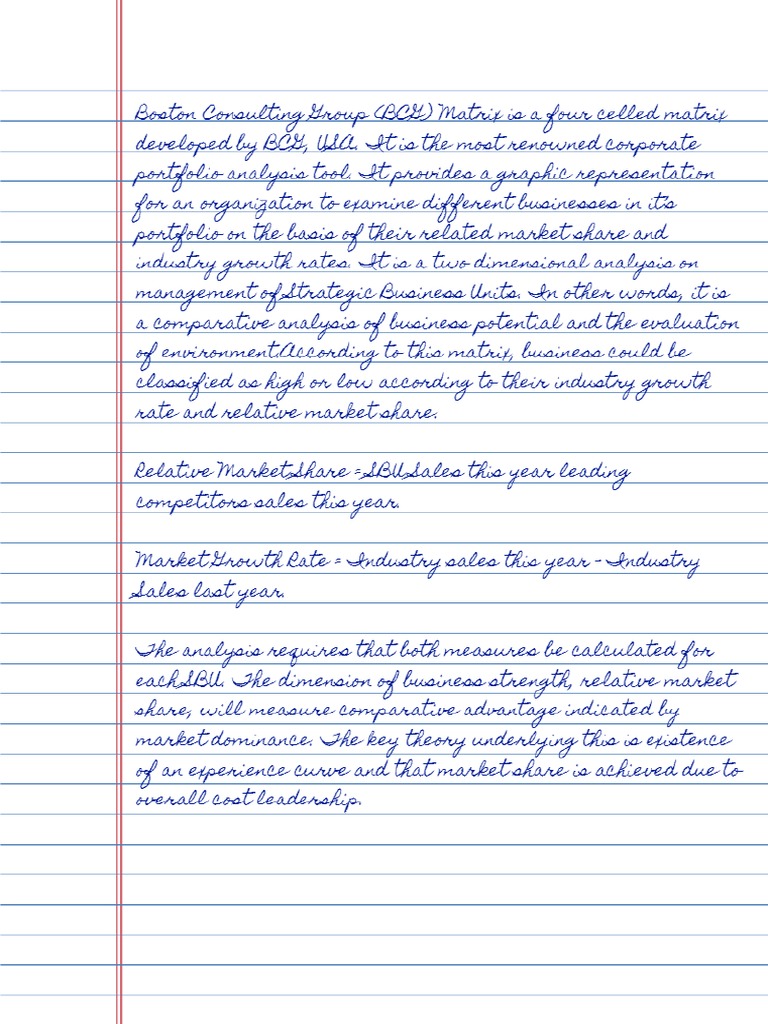 Boston Consulting Group (BCG) Matrix is a four celled matrix
developed by BCG, USA. It is the most renowned corporate
portfolio analysis tool. It provides a graphic representation
for an organization to examine different businesses in it's
portfolio on the basis of their related market share and
industry growth rates. It is a two dimensional analysis on
management of Strategic Business Units. In other words, it is
a comparative analysis of business potential and the evaluation
of environment.According to this matrix, business could be
classified as high or low according to their industry growth
rate and relative market share.
Relative Market Share = SBU Sales this year leading
competitors sales this year.
Market Growth Rate = Industry sales this year - Industry
Sales last year.
The analysis requires that both measures be calculated for
each SBU. The dimension of business strength, relative market
share, will measure comparative advantage indicated by
market dominance. The key theory underlying this is existence
of an experience curve and that market share is achieved due to
overall cost leadership.